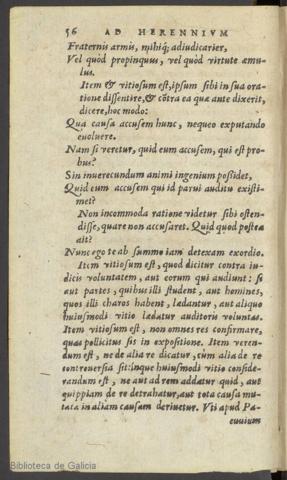 56 AD HERENNIVM
Fraternis armis, mihiq; adiudicarier,
Vel quòd propinquus, vel quòd virtute æmu-
lus.
Item & vitiosum est, ipsum sibi in sua ora-
tione dissentire, & cõtra ea quæ ante dixerit,
dicere, hoc modo:
Qua causa accusem hunc, nequeo exputando
euoluere.
Nam si veretur, quid eum accusem, qui est pro-
bus?
Sin inuerecundum animi ingenium possidet,
Quid eum accusem qui id parui auditu existi-
met?
Non incommoda ratione videtur sibi osten-
disse, quare non accusaret. Quid quod postea
ait?
Nunc ego te ab summo iam detexam exordio.
Item vitiosum est, quod dicitur contra iu-
dicis voluntatem, aut eorum qui audiunt: si
aut partes, quibus illi student, aut homines,
quos illi charos habent, lædantur, aut aliquo
huiusmodi vitio lædatur auditoris voluntas.
Item vitiosum est, non omnes res confirmare,
quas pollicitus sis in expositione. Item veren-
dum est, ne de alia re dicatur, cùm alia de re
controuersia sit: inque huiusmodi vitio conside-
randum est, ne aut ad rem addatur quid, aut
quippiam de re detrahatur, aut tota causa mu-
tata in aliam causam deriuetur. Vti apud Pa-
cuuium
Biblioteca de Galicia